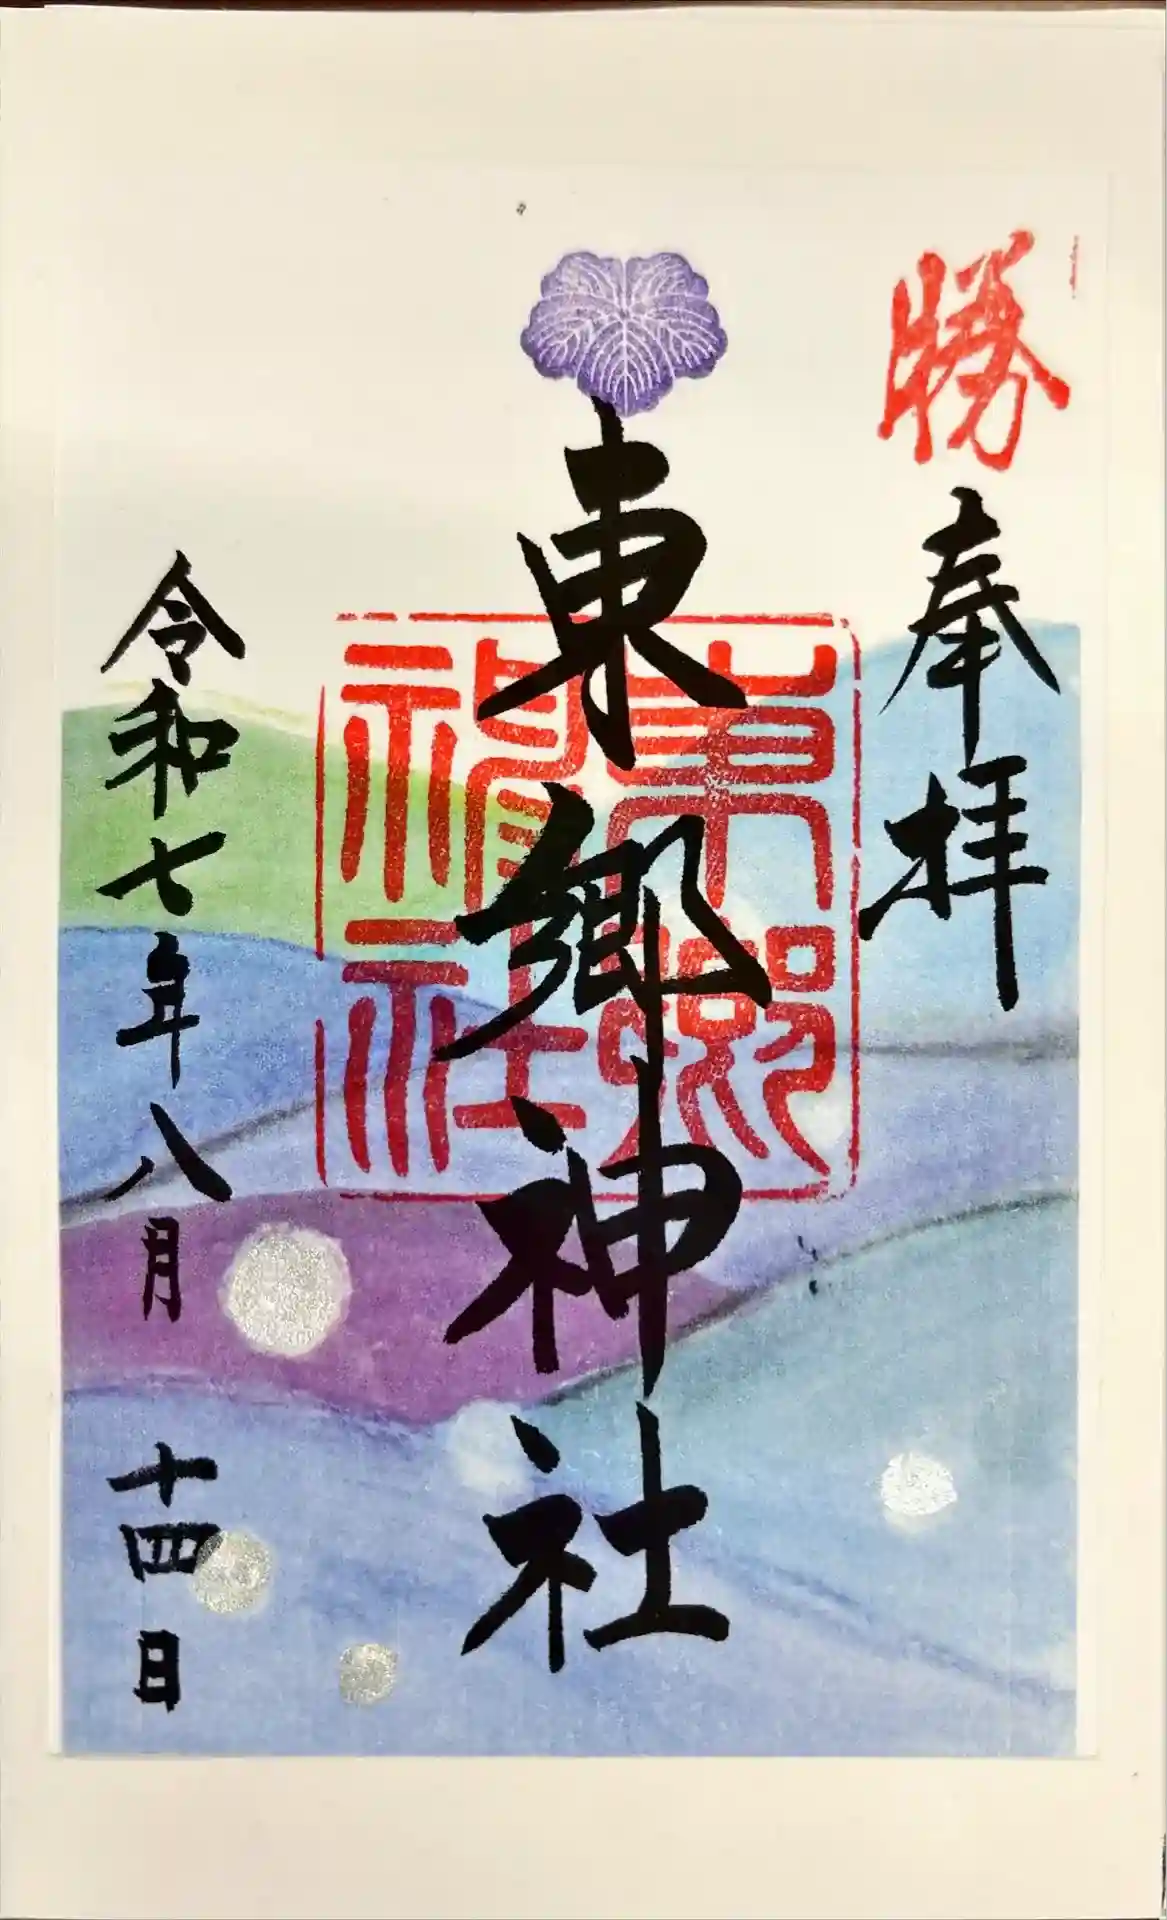 勝
奉拝
東郷神社
東郷神社
令和七年八月十四日